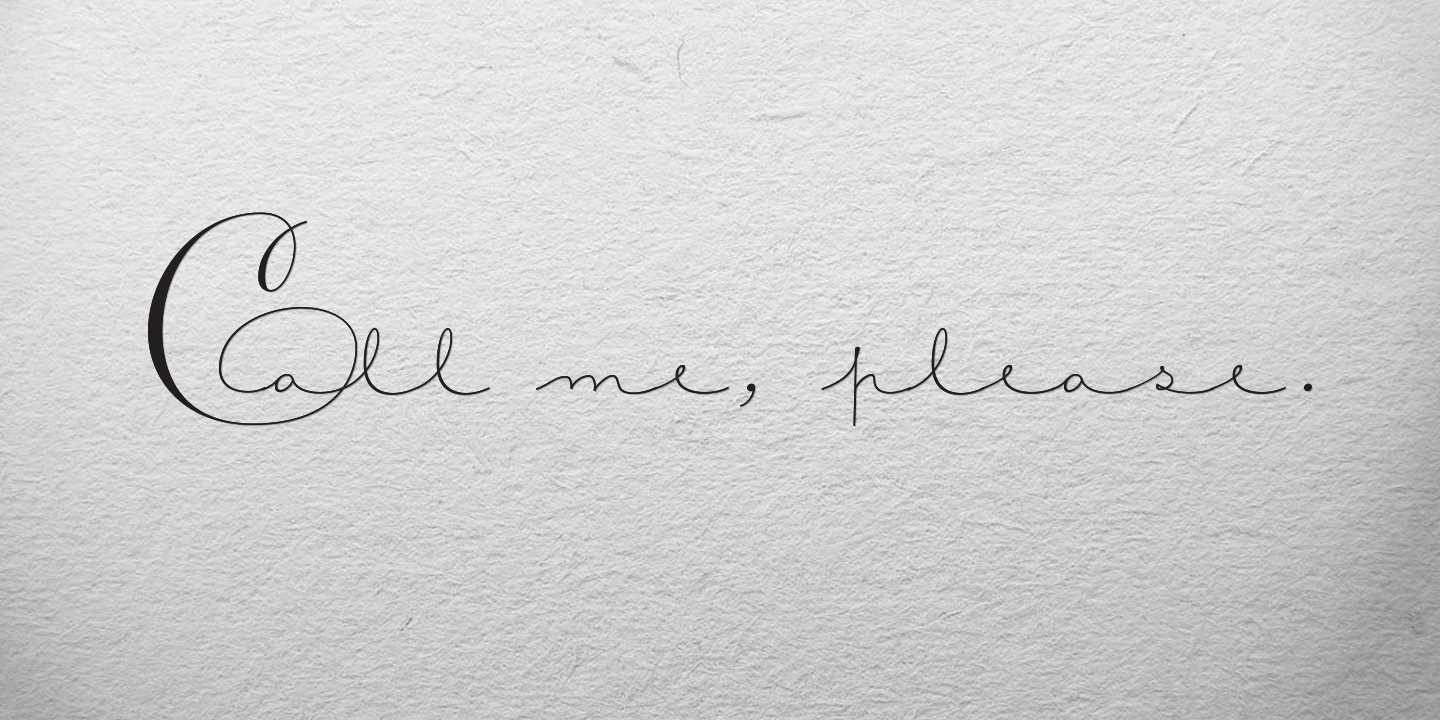 Call me, please.